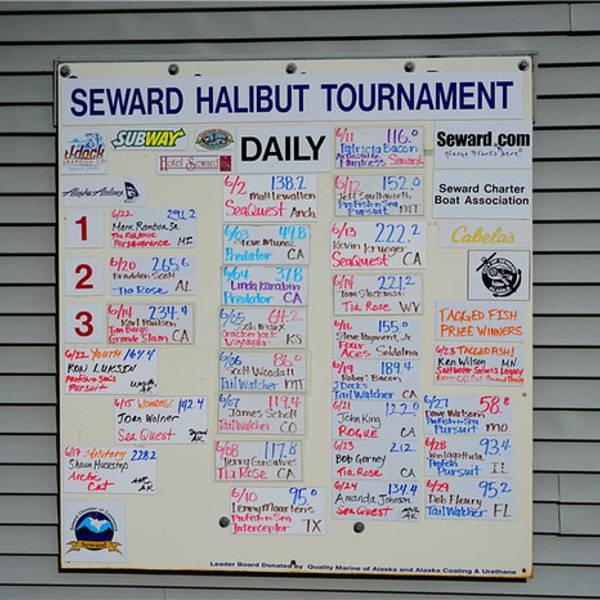 SEWARD HALIBUT TOURNAMENT
J-dock
SUBWAY
Hotel Seward
DAILY
Alaska Airlines
Seward.com
Alaska Starts Here
Seward Charter
Boat Association
Cabela's
1
6/22 291.2
Mark
Perseverance MI
2
6/20 265.6
Scott AL
Tia Rose
3
6/14 234.4
Karl Paulsen
Grande Slam CA
6/22 Youth 164.4
RON LUKSIN
Profish-n-Sea
Pursuit
6/15 Women's 142.4
Joan Wolner
Sea Quest
AK
6/17 Military 228.2
Shawn
Arctic
Cat
AK
Seward
6/2 138.2
Matt Lewallen
SeaQuest Anch
6/03 49.8
Steve Munoz
Predator CA
6/04 37.8
Linda Karabin
Predator CA
6/05 64.2
Crackerjack
Voyager KS
6/06 86.0
Scott Woodall
Tail Walker MT
6/07 119.4
James Schott
Tail Walker CO
6/08 117.8
Jerry Goncalves
Tia Rose CA
6/10 95.0
Lenny Maartens
Profish-n-Sea
Interceptor TX
6/11 116.0
Patricia Bacon
Huntress Seward
6/12 152.0
Jeff Southworth
Profish-n-Sea
Pursuit MT
6/13 222.2
Kevin Krueger
SeaQuest CA
6/14 221.2
Tom Stockman
Tia Rose WV
155.0
Steve Jr
Four
Aces Soldotna
6/19 189.4
Robert Bacon
J Docks
Tail Walker CA
6/21 122.0
John King
ROGUE CA
6/23 212
Bob Gorney
Tia Rose CA
6/24 134.4
Amanda Johnson
Sea Quest AK
TAGGED FISH
PRIZE WINNERS
6/23 TAGGED FISH!
Ken Wilson MN
Saltwater Safaris Legacy
6/27 58.8
Dave Watson
Profish-n-Sea
Pursuit MO
6/28 93.4
Profish
Pursuit IL
6/29 95.2
Deb Fleury
Tail Walker FL
Leader Board Donated by Quality Marine of Alaska and Alaska Coating & Urethane